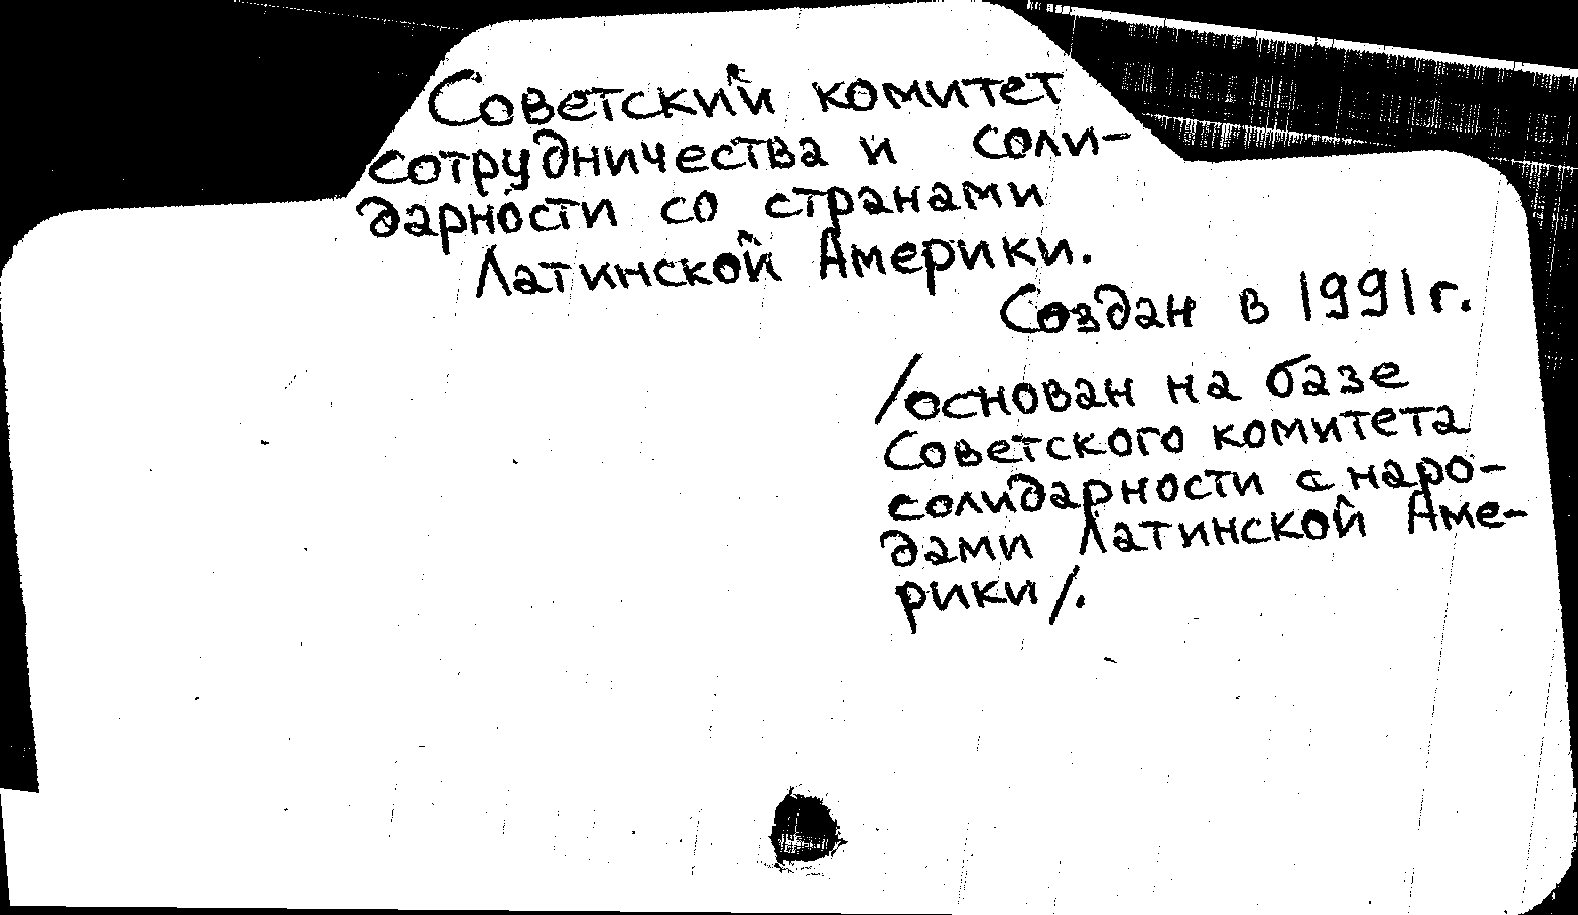 Советский комитет
сотрудничества и соли-
дарности со странами
Латинской Америки.
Создан в 1991 г.
/основан на базе
Советского комитета
солидарности с наро-
дами Латинской Аме-
рики/.